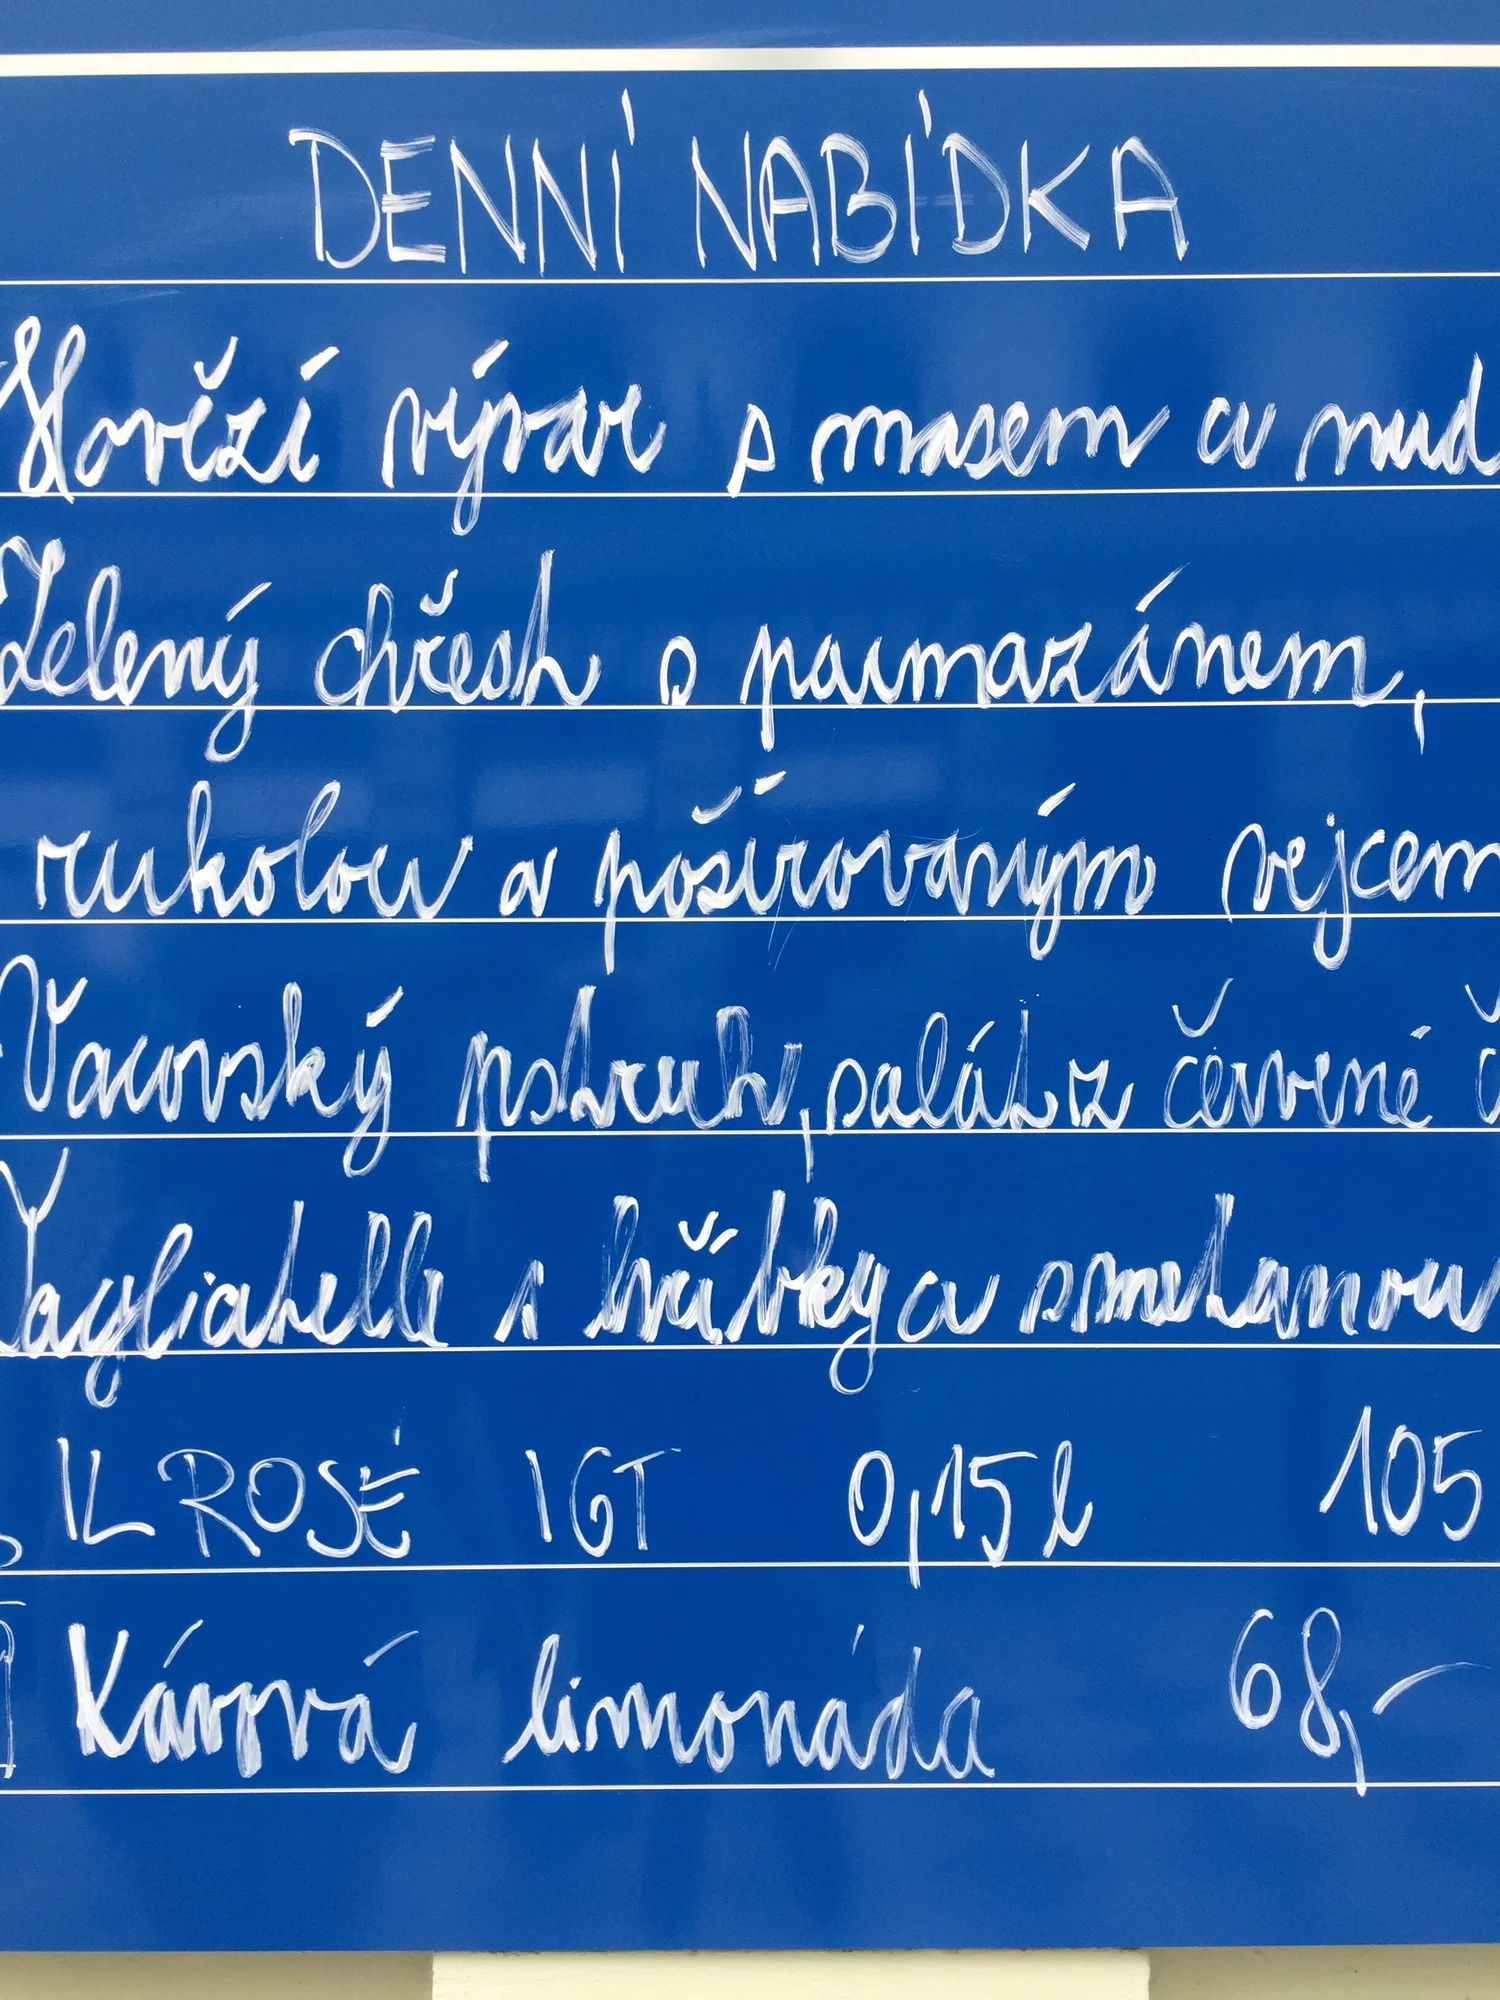 DENNÍ NABÍDKA
Hovězí vývar s masem a nud
Zelený chřest s parmazánem,
rukolou a pošírovaným vejcem
Vacovský pstruh, salát z červené č
Tagliatelle s hřibky a smetanou
IL ROSÉ IGT 0,15 l 105
Kávová limonáda 68,-